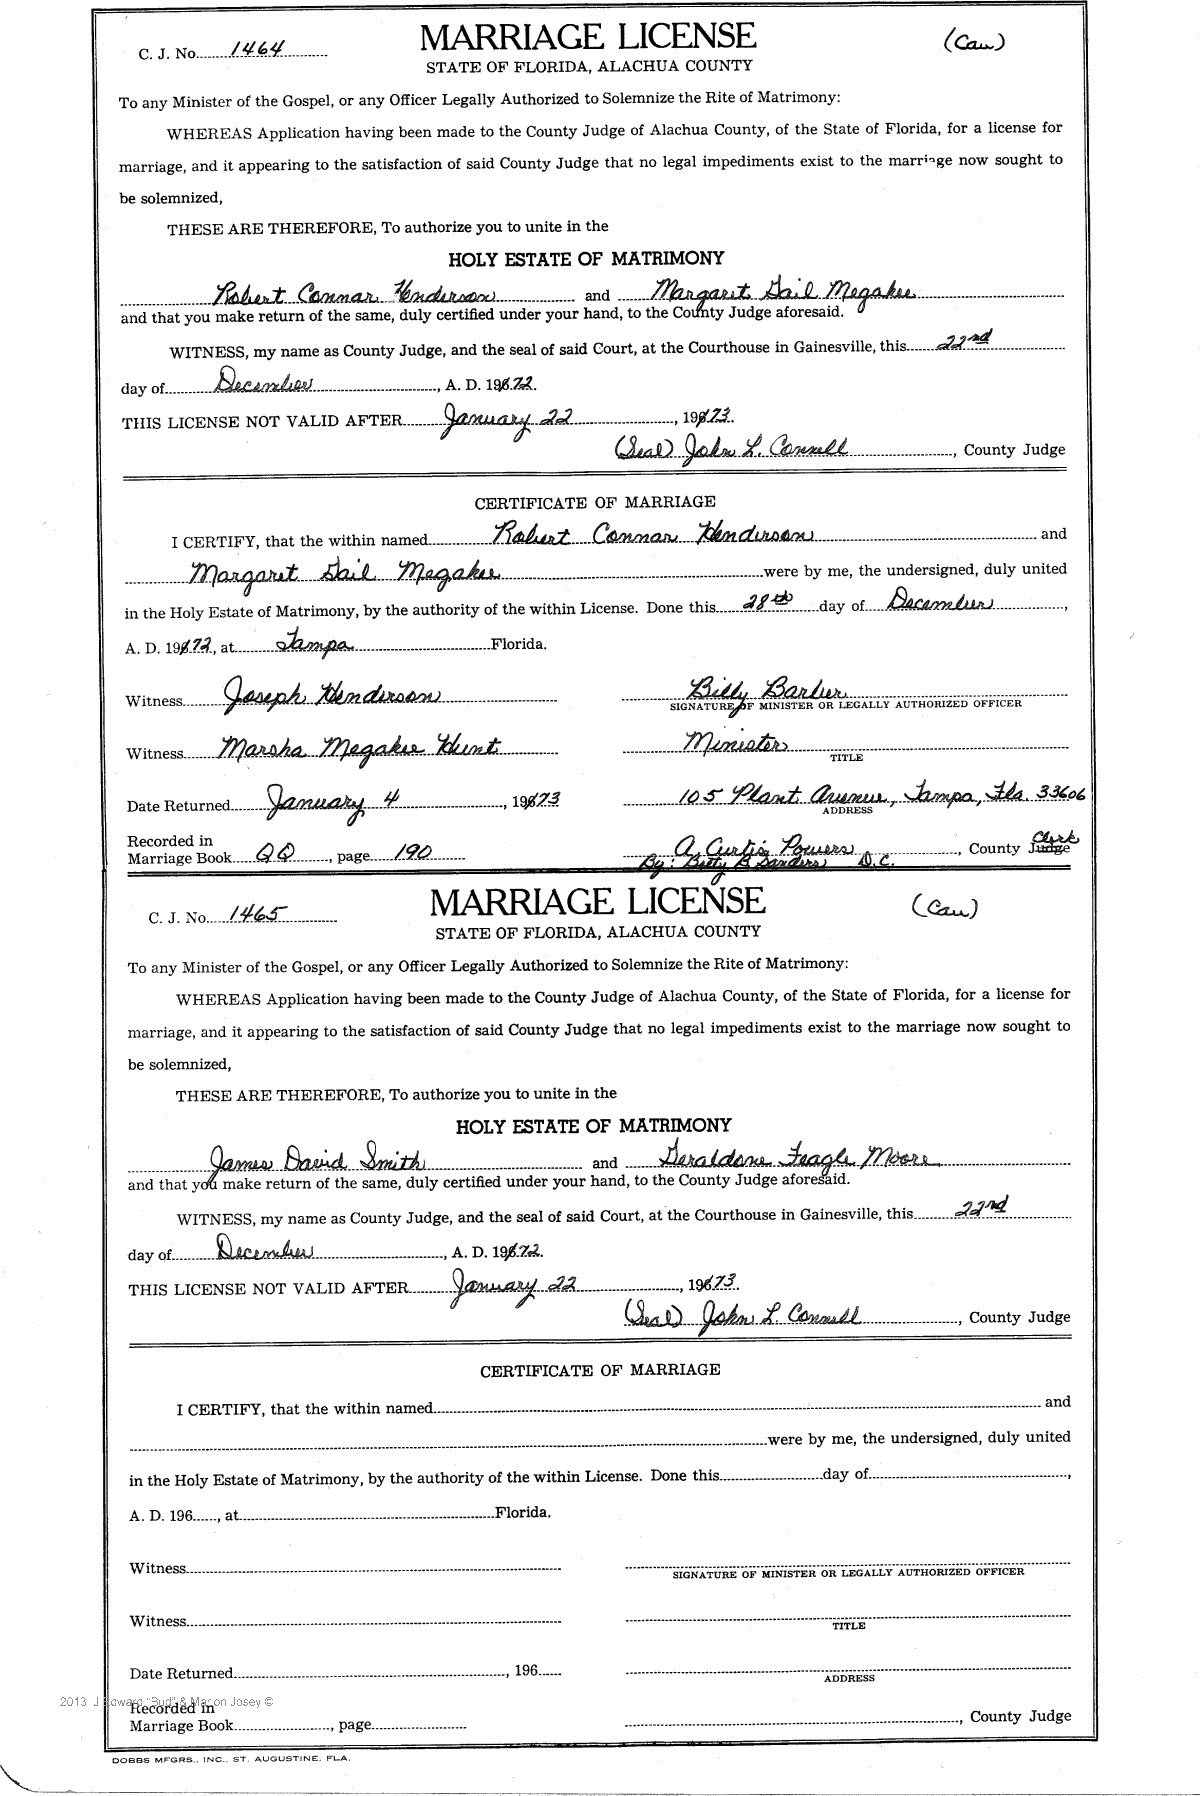 C. J. No. 1464
MARRIAGE LICENSE
(Cau)
STATE OF FLORIDA, ALACHUA COUNTY
To any Minister of the Gospel, or any Officer Legally Authorized to Solemnize the Rite of Matrimony:
WHEREAS Application having been made to the County Judge of Alachua County, of the State of Florida, for a license for
marriage, and it appearing to the satisfaction of said County Judge that no legal impediments exist to the marriage now sought to
be solemnized,
THESE ARE THEREFORE, To authorize you to unite in the
HOLY ESTATE OF MATRIMONY
Robert Connar Henderson and Margaret Gail Megahee
and that you make return of the same, duly certified under your hand, to the County Judge aforesaid.
WITNESS, my name as County Judge, and the seal of said Court, at the Courthouse in Gainesville, this 22nd
day of December, A. D. 1972.
THIS LICENSE NOT VALID AFTER January 22, 1973.
(Seal) John L. Connell, County Judge
CERTIFICATE OF MARRIAGE
I CERTIFY, that the within named Robert Connar Henderson and
Margaret Gail Megahee were by me, the undersigned, duly united
in the Holy Estate of Matrimony, by the authority of the within License. Done this 28th day of December,
A. D. 1972, at Tampa Florida.
Witness Joseph Henderson
Billy Barber
SIGNATURE OF MINISTER OR LEGALLY AUTHORIZED OFFICER
Witness Marsha Megahee Hunt
Minister
TITLE
Date Returned January 4, 1973
105 Plant Avenue, Tampa, Fla. 33606
ADDRESS
Recorded in
Marriage Book QQ, page 190
A. Curtis Powers, County Judge Clerk
By: Betty B Sanders D.C.
C. J. No. 1465
MARRIAGE LICENSE
(Cau)
STATE OF FLORIDA, ALACHUA COUNTY
To any Minister of the Gospel, or any Officer Legally Authorized to Solemnize the Rite of Matrimony:
WHEREAS Application having been made to the County Judge of Alachua County, of the State of Florida, for a license for
marriage, and it appearing to the satisfaction of said County Judge that no legal impediments exist to the marriage now sought to
be solemnized,
THESE ARE THEREFORE, To authorize you to unite in the
HOLY ESTATE OF MATRIMONY
James David Smith and Geraldone Feagle Moore
and that you make return of the same, duly certified under your hand, to the County Judge aforesaid.
WITNESS, my name as County Judge, and the seal of said Court, at the Courthouse in Gainesville, this 22nd
day of December, A. D. 1972.
THIS LICENSE NOT VALID AFTER January 22, 1973.
(Seal) John L. Connell, County Judge
CERTIFICATE OF MARRIAGE
I CERTIFY, that the within named and
were by me, the undersigned, duly united
in the Holy Estate of Matrimony, by the authority of the within License. Done this day of ,
A. D. 196 , at Florida.
Witness
SIGNATURE OF MINISTER OR LEGALLY AUTHORIZED OFFICER
Witness
TITLE
Date Returned , 196
ADDRESS
2013 J Edward "Bud" & Marion Josey ©
Recorded in
Marriage Book , page
, County Judge
DOBBS MFGRS., INC., ST. AUGUSTINE, FLA.